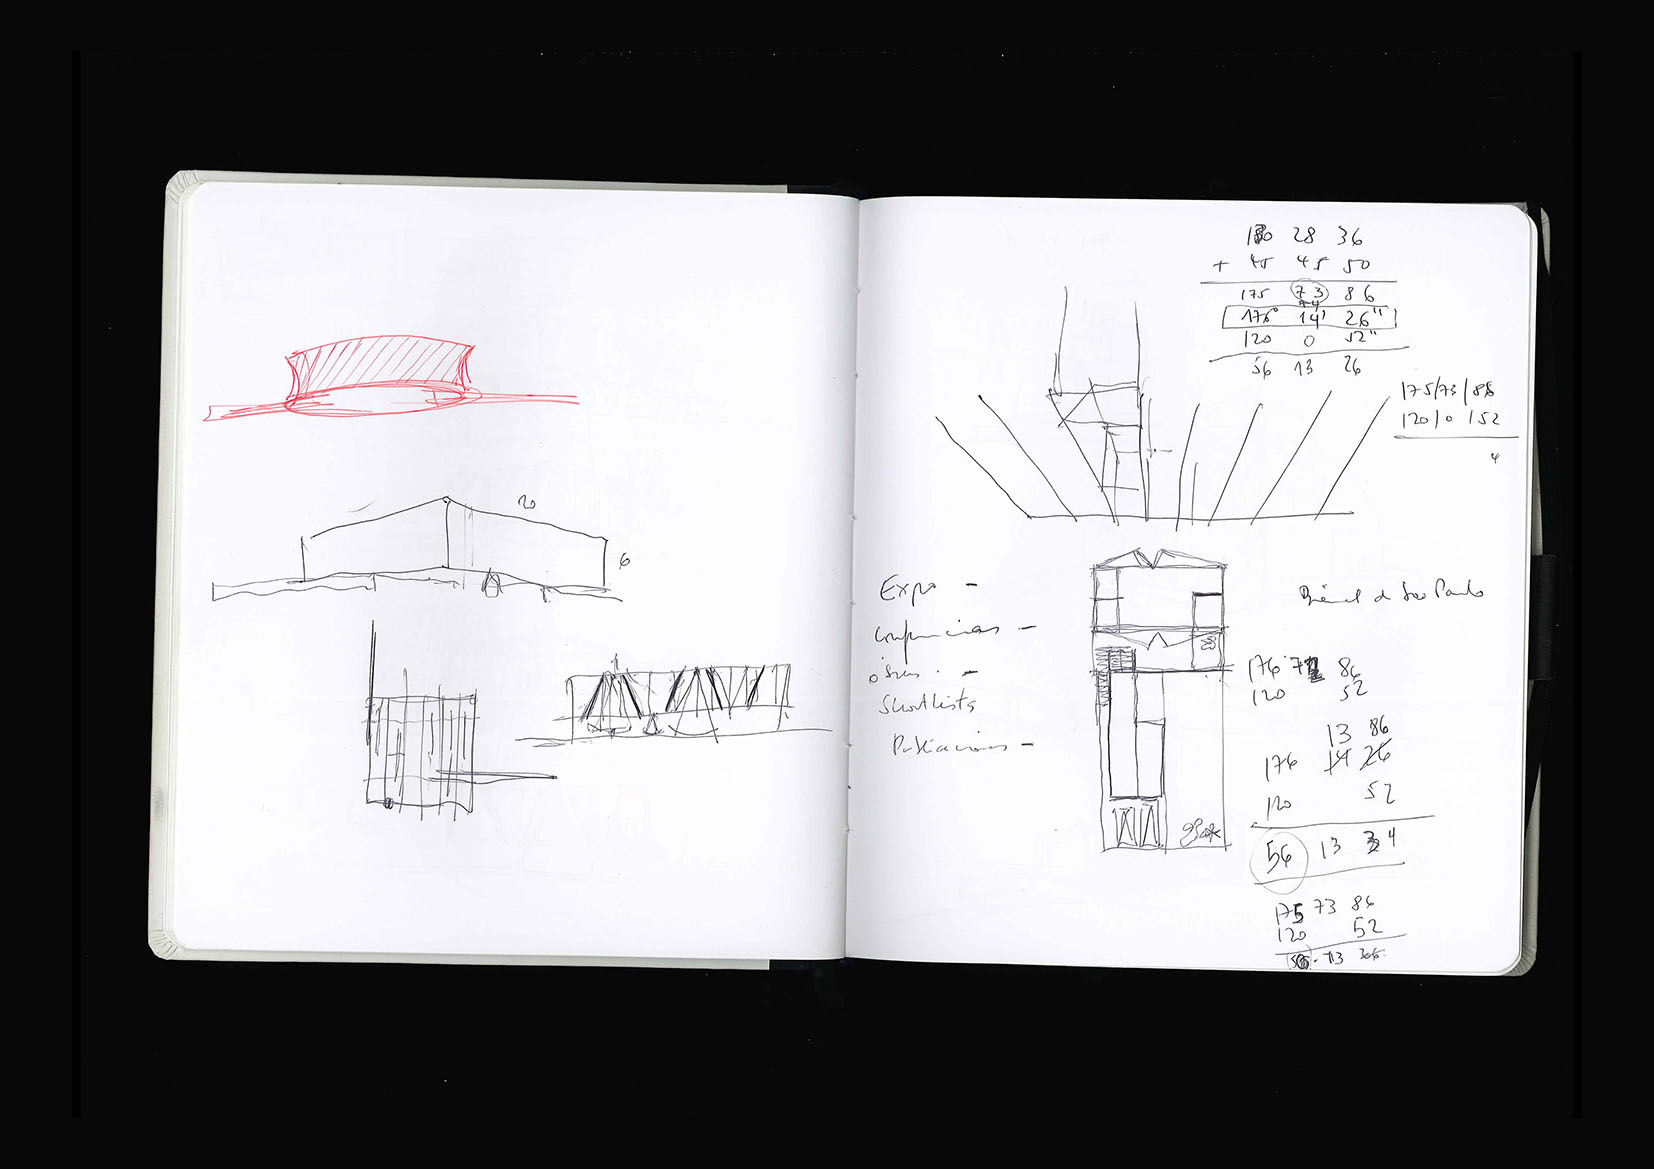 20
6
28 36
+ 45 45 50
175 73 86
176° 14' 26"
120 0 52"
56 13 26
175/73/86
120/0/52
4
Expo -
Shortlists
Publicaciones -
Bienal de Sao Paulo
176 72 86
120 52
13 86
176 14 26
120 52
56 13 34
175 73 86
120 52
13